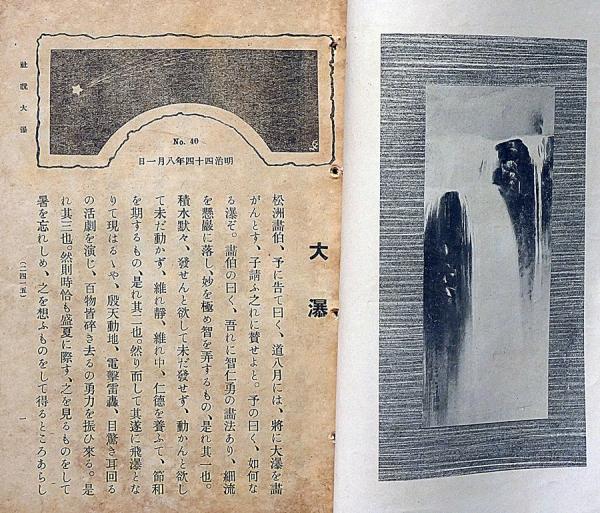 社説大瀑
No. 40
明治四十四年八月一日
大瀑
松洲畵伯、予に告て曰く、道八月には、將に大瀑を畵
がんとす、子請ふ之れに賛せよと。予の曰く、如何な
る瀑ぞ。畵伯の曰く、吾れに智仁勇の畵法あり、細流
を懸巖に落し、妙を極め智を弄するもの、是れ其一也。
積水默々、發せんと欲して未だ發せず、動かんと欲し
て未だ動かず、維れ靜、維れ中、仁德を養ふて、節和
を期するもの、是れ其二也。然り而して其遂に飛瀑とな
りて現はるゝや、殷天動地、電擊雷轟、目驚き耳回る
の活劇を演じ、百物皆碎き去るの勇力を振ひ來る。是
れ其三也。然則時恰も盛夏に際す、之を見るものをして
暑を忘れしめ、之を想ふものをして得るところあらし
(二四一五)
一